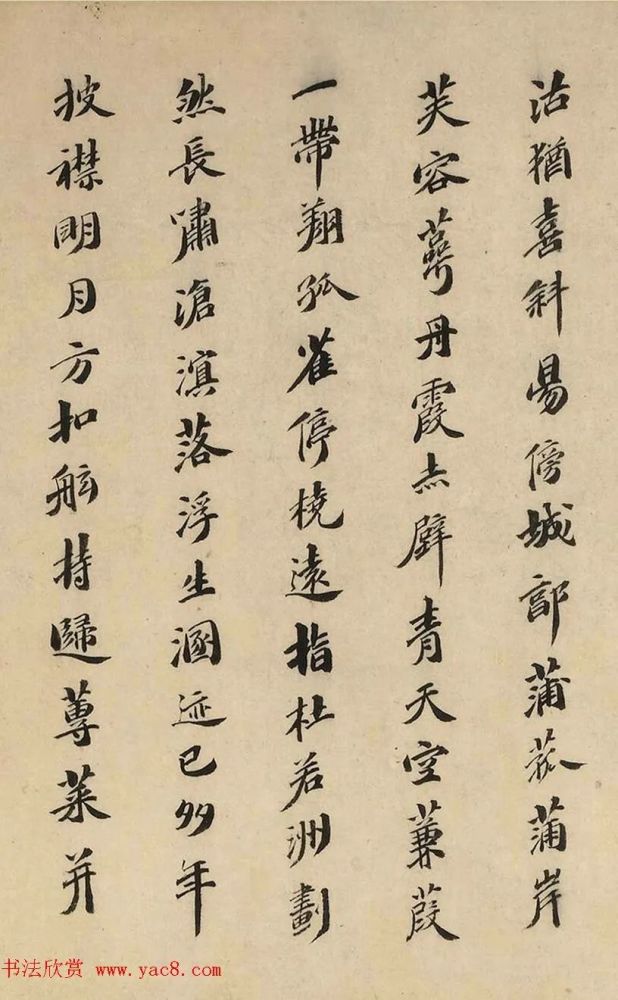 沽猶喜斜昜傍城郭蒲菰蒲岸
芙容蕚丹霞赤壁青天空蒹葭
一帶翔孤雀停橈遠指杜若洲劃
然長嘯滄溟落浮生溷迹已多年
披襟明月方扣舷持歸蓴菜并
书法欣赏 www.yac8.com